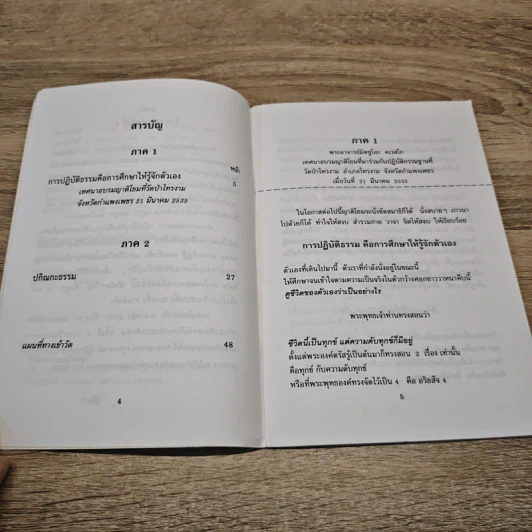 สารบัญ
ภาค 1
หน้า
การปฏิบัติธรรมคือการศึกษาให้รู้จักตัวเอง 5
เทศนาอบรมญาติโยมที่วัดป่าไทรงาม
จังหวัดกำแพงเพชร 21 มีนาคม 2535
ภาค 2
ปกิณกะธรรม 27
แผนที่ทางเข้าวัด 48
4
ภาค 1
พระอาจารย์มิตซูโอะ คเวสโก
เทศนาอบรมญาติโยมที่มาร่วมกันปฏิบัติกรรมฐานที่
วัดป่าไทรงาม อำเภอไทรงาม จังหวัดกำแพงเพชร
เมื่อวันที่ 21 มีนาคม 2535
ในโอกาสต่อไปนี้ญาติโยมจะนั่งขัดสมาธิก็ได้ นั่งสบายๆ ภาวนา
ไปด้วยก็ได้ ทำใจให้สงบ สำรวมกาย วาจา จิตให้สงบ ให้เรียบร้อย
การปฏิบัติธรรม คือการศึกษาให้รู้จักตัวเอง
ตัวเองที่เดินไปมานี้ ตัวเราที่กำลังนั่งอยู่ในขณะนี้
ให้ศึกษาจนเข้าใจตามความเป็นจริงในตัวกว้างศอกยาววาหนาคืบนี้
ดูชีวิตของตัวเองว่าเป็นอย่างไร
พระพุทธเจ้าท่านทรงสอนว่า
ชีวิตนี้เป็นทุกข์ แต่ความดับทุกข์ก็มีอยู่
ตั้งแต่พระองค์ตรัสรู้เป็นต้นมาก็ทรงสอน 2 เรื่อง เท่านั้น
คือทุกข์ กับความดับทุกข์
หรือที่พระพุทธองค์ทรงจัดไว้เป็น 4 คือ อริยสัจ 4
5